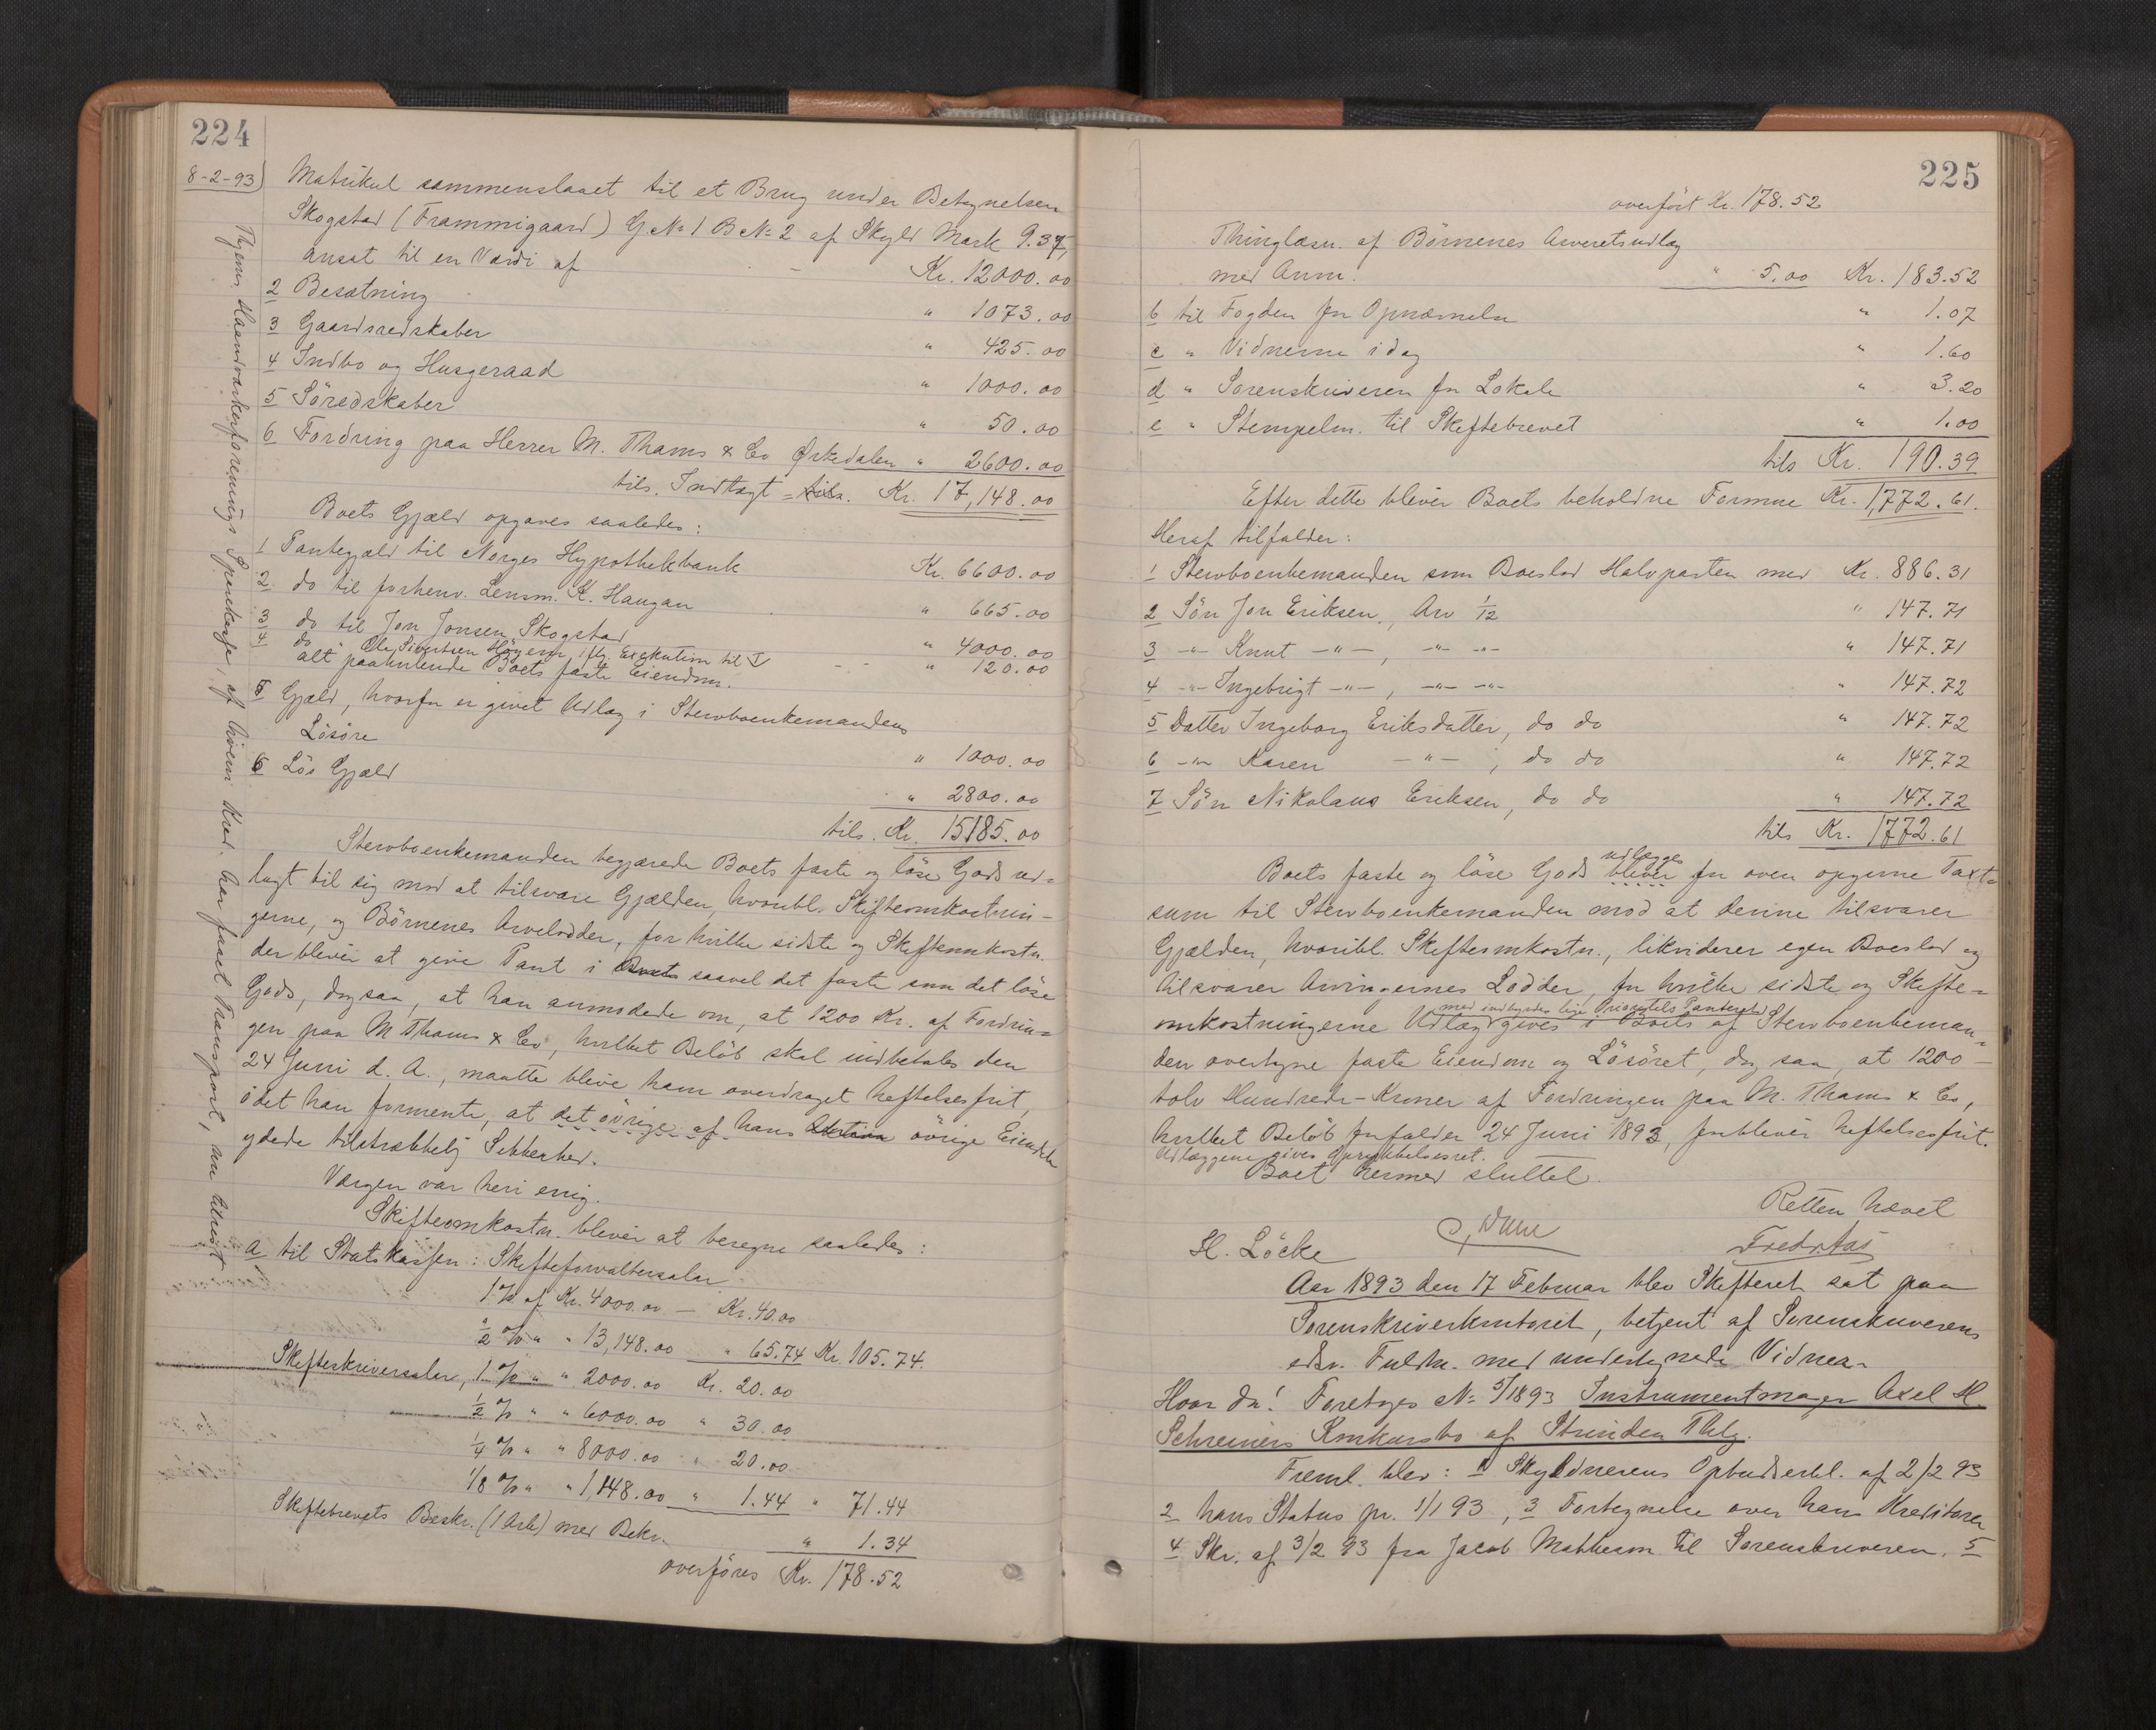 224
8-2-93)
Matrikul sammenslaaet til et Brug under Betegnelsen
Skogstad (Frammigaard) G.№ 1 B№ 2 af Skyld Mark 9.37,
ansat til en Værdi af - Kr. 12000.00
2 Besætning " 1073.00
3 Gaardsredskaber " 425.00
4 Indbo og Husgeraad " 1000.00
5 Söredskaber " 50.00
6 Fordring paa Herrer M. Thams & Co Ørkedalen " 2600.00
tils. Indtægt = tils. Kr. 17,148.00
Boets Gjæld opgaves saaledes:
1 Pantegjæld til Norges Hypothekbank Kr. 6600.00
2 do til forhenv. Lensm. K. Haugan " 665.00
3 do til Jon Jonsen Skogstad " 4000.00
4 do " Ole Sivertsen Höyem iflg. Exekution til I
alt paahvilende Boets faste Eiendom. - - " 120.00
5 Gjæld, hvorfor er givet Udlæg i Stervboenkemandens
Lösöre " 1000.00
6 Lös Gjæld " 2800.00
tils. Kr. 15185.00
Stervboenkemanden begjærede Boets faste og löse Gods ud=
lagt til sig mod at tilsvare Gjælden, hvoribl. Skifteomkostnin-
gerne, og Börnenes Arvelodder, for hvilke sidste og Skifteomkostn.
der bliver at give Pant i Boets saavel det faste som det löse
Gods, dog saa, at han anmodede om, at 1200 Kr. af Fordrin=
gen paa M Thams & Co, hvilket Belöb skal indbetales den
24 Juni d. A., maatte blive ham overdraget heftelsesfrit,
idet han formente, at det övrige af hans övrige Eiendele
ydede tilstrækkelig Sikkerhed.
Værgen var heri enig.
Skifteomkostn. bliver at beregne saaledes:
a til Statskassen: Skifteforvaltersalær
1 % af Kr. 4000.00 — Kr. 40.00
1/2 % " " 13,148.00 " 65.74 Kr. 105.74.
Skifteskriversalær, 1 % " " 2000.00 Kr. 20.00
1/2 % " " 6000.00 " 30.00
1/4 % " " 8000.00 " 20.00
1/8 % " " 1,148.00 " 1.44 " 71.44
Skiftebrevets Beskr. (1 Ark) med Bekr. " 1.34
overföres Kr. 178.52
Hjems Haandværkerforenings Sparekasse, af hvem Kred. har faaet Transport, nu tilkjendt
225
overfört Kr. 178.52
Thinglæsn. af Börnenes Arveretsudlæg
med Anm. " 5.00 Kr. 183.52
b til Fogden for Opnævnelse " 1.07
c " Vidnerne idag " 1.60
d " Sorenskriveren for Lokale " 3.20
e " Stempelm. til Skiftebrevet " 1.00
tils Kr. 190.39
Efter dette bliver Boets beholdne Formue Kr. 1,772.61.
Heraf tilfalder:
1 Stervboenkemanden som Boeslod Halvparten med Kr. 886.31
2 Sön Jon Eriksen, Arv 1/12 " 147.71
3 -"- Knut -"-, -"- -"- " 147.71
4 -"- Ingebrigt -"-, -"- -"- " 147.72
5 Datter Ingeborg Eriksdatter, do do " 147.72
6 -"- Karen -"-, do do " 147.72
7 Sön Nikolaus Eriksen, do do " 147.72
tils Kr. 1772.61
udlægges
Boets faste og löse Gods bliver for oven opgivne Taxt=
sum til Stervboenkemanden mod at denne tilsvarer
Gjælden, hvoribl. Skifteomkostn., likviderer egen Boeslod og
tilsvarer Arvingernes Lodder, for hvilke sidste og Skifte=
med indbyrdes lige Prioritets Panteret
omkostningerne Udlæg gives i Boets af Stervboenkeman=
den overtagne faste Eiendom og Lösöret, dog saa, at 1200 —
tolv Hundrede - Kroner af Fordringen paa M. Thams & Co,
hvilket Belöb forfalder 24 Juni 1893, forbliver heftelsesfrit.
Udlæggene gives Opryk­kelsesret.
Boet hermed sluttet.
Retten hævet
H. Löcke
Aar 1893 den 17 Februar blev Skifteret sat paa
Sorenskriverkontoret, betjent af Sorenskriverens
edsv. Fuldm. med undertegnede Vidner.
Hvor da! Foretoges № 5/1893 Instrumentmager Axel H.
Schreiners Konkursbo af Strinden Thlg.
Freml. blev: 1 Skyldnerens Opbudserkl. af 2/2 93
2 hans Status pr. 1/1 93, 3 Fortegnelse over hans Kreditorer
4 Skr. af 3/2 93 fra Jacob Matheson til Sorenskriveren. 5